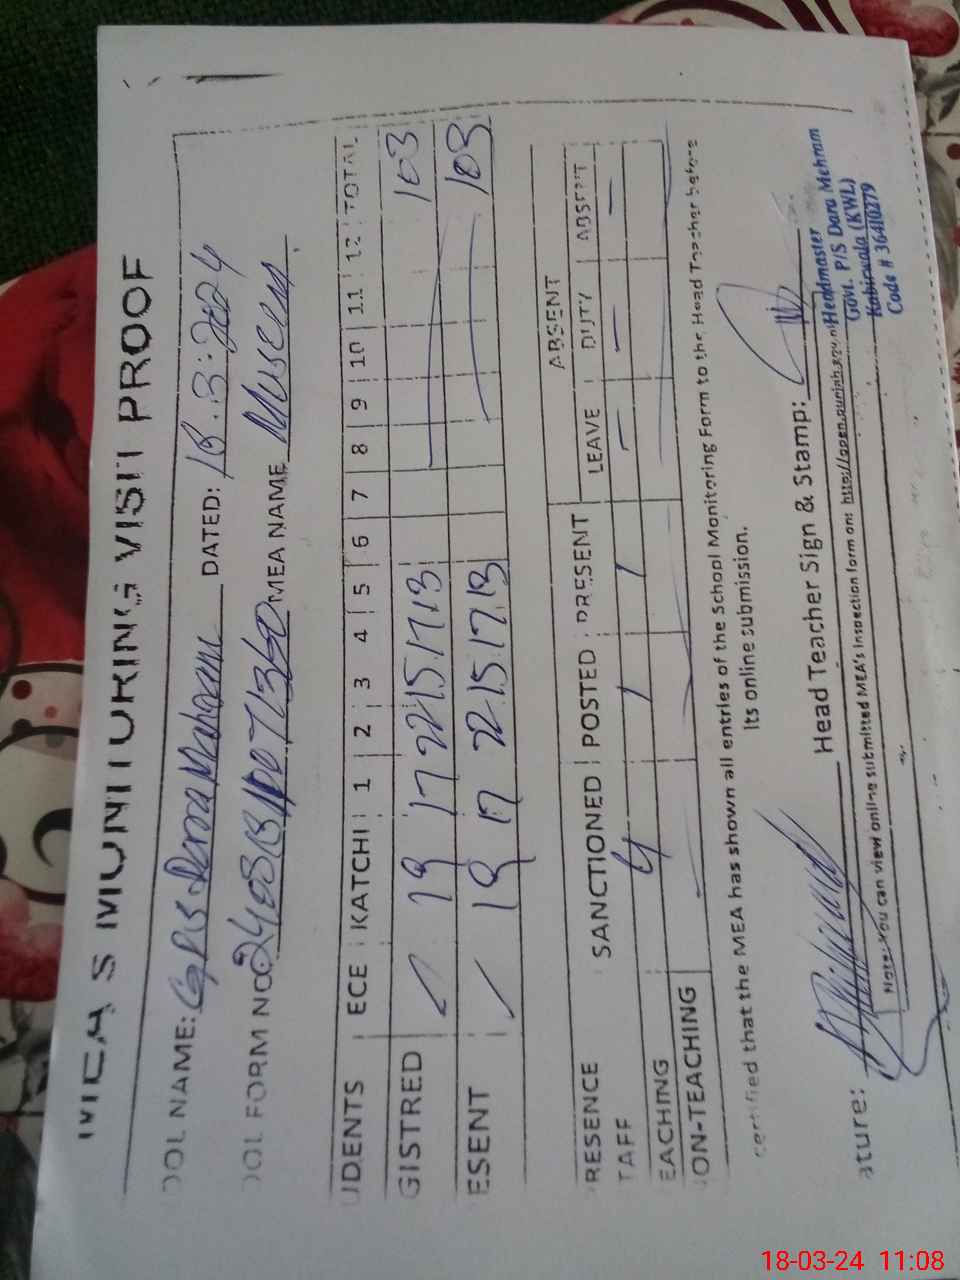 MEA'S MONITORING VISIT PROOF
OOL NAME: GPS Dara Mahram DATED: 18.3.2024
OOL FORM NO. MEA NAME
UDENTS ECE KATCHI 1 2 3 4 5 6 7 8 9 10 11 12 TOTAL
GISTRED 19 17 22 15 17 13 103
ESENT 19 17 22 15 17 13 103
ABSENT
RESENCE SANCTIONED POSTED PRESENT LEAVE DUTY ABSENT
TAFF 4 1 1 — — —
EACHING
ON-TEACHING
certified that the MEA has shown all entries of the School Monitoring Form to the Head Teacher before
Its online submission.
ature: Head Teacher Sign & Stamp:
Headmaster
Govt. P/S Dara Mehram
Kabirwala (KWL)
Code # 36410279
Note: You can view online submitted MEA's Inspection form on: http://open.punjab.gov.
18-03-24 11:08